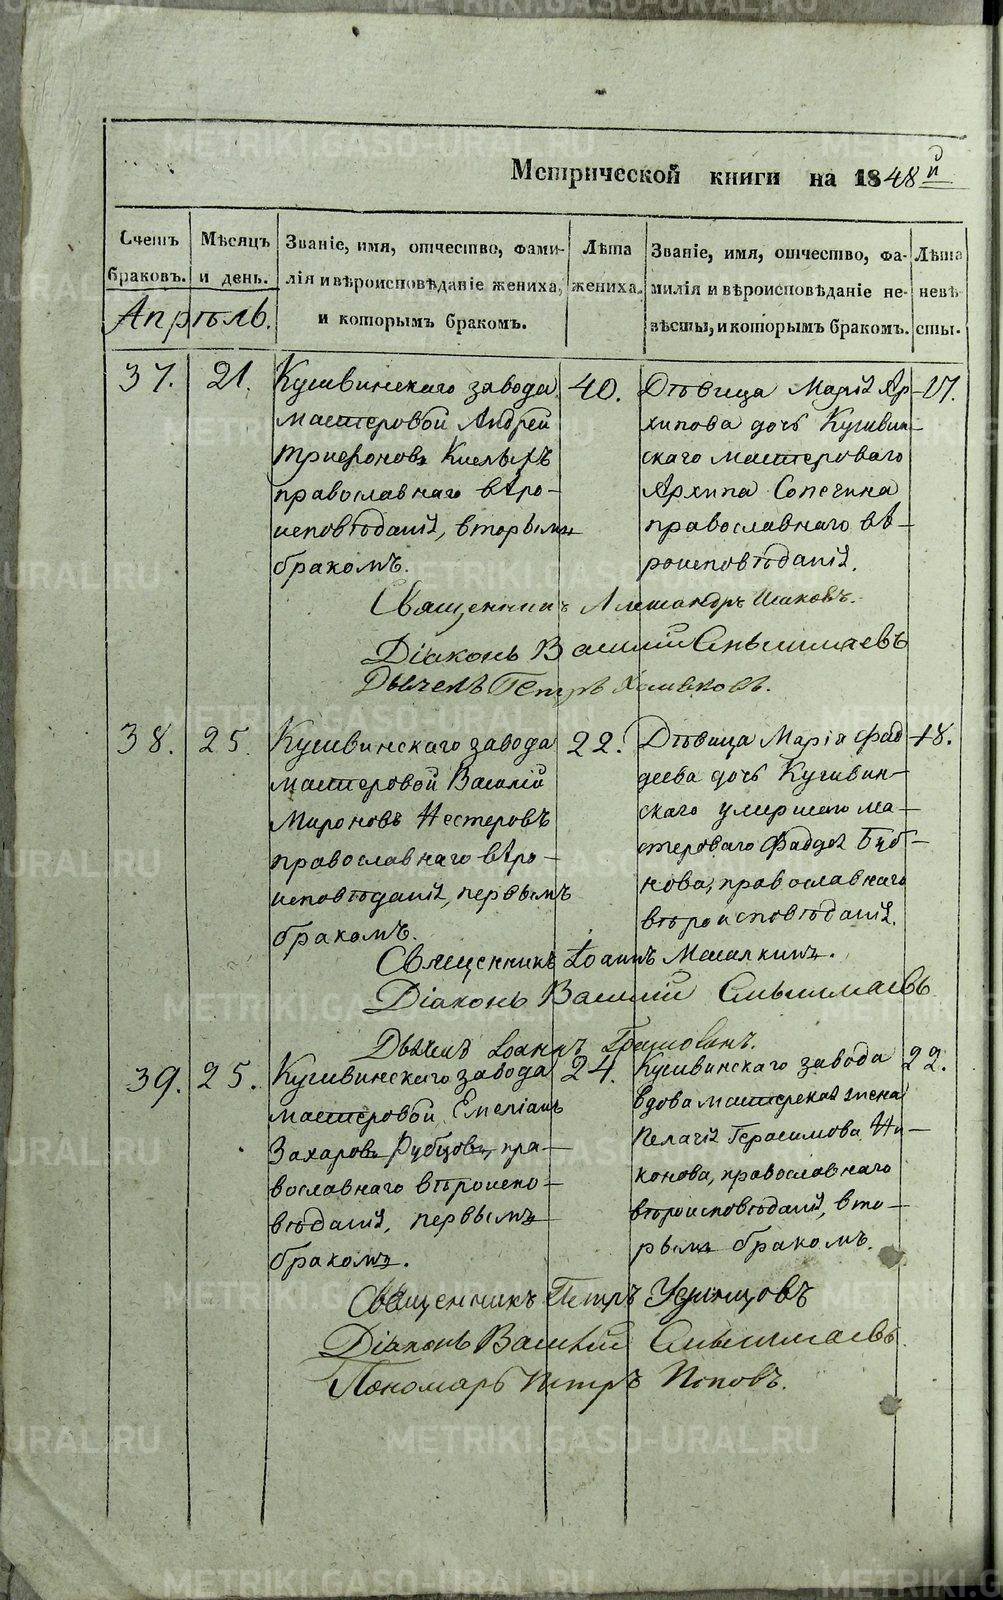 Метрической книги на 1848й
Счетъ браковъ.
Мѣсяцъ и день.
Званіе, имя, отчество, фами-
лія и вѣроисповѣданіе жениха,
и которымъ бракомъ.
Лѣта жениха.
Званіе, имя, отчество, фа-
милія и вѣроисповѣданіе не-
вѣсты, и которымъ бракомъ.
Лѣта невѣ-
сты.
Апрѣль.
37.
21.
Кушвинскаго завода
мастеровой Андрей
православнаго вѣро-
исповѣданія, вторымъ
бракомъ.
40.
Дѣвица Марія Ар-
хипова дочь Кушвин-
скаго мастероваго
Архипа Сопегина
православнаго вѣ-
роисповѣданія.
17.
Священникъ Александръ
Діаконъ Василій
Дьячекъ Петръ
38.
25.
Кушвинскаго завода
мастеровой Василій
Мироновъ Нестеровъ
православнаго вѣро-
исповѣданія, первымъ
бракомъ.
22.
Дѣвица Марія Фад
деева дочь Кушвин-
скаго умершаго ма-
стероваго Фаддея Буб-
нова, православнаго
вѣроисповѣданія.
18.
Священникъ Іоаннъ
Діаконъ Василій
Дьячекъ Іоаннъ
39.
25.
Кушвинскаго завода
мастеровой Емеліанъ
Захаровъ Рубцовъ, пра-
вославнаго вѣроиспо-
вѣданія, первымъ
бракомъ.
24.
Кушвинскаго завода
вдова мастерская жена
Пелагія Герасимова Ни-
конова, православнаго
вѣроисповѣданія, вто-
рымъ бракомъ.
22.
Священникъ Петръ
Діаконъ Василій
Пономарь Петръ Поповъ.
METRIKI.GASO-URAL.RU